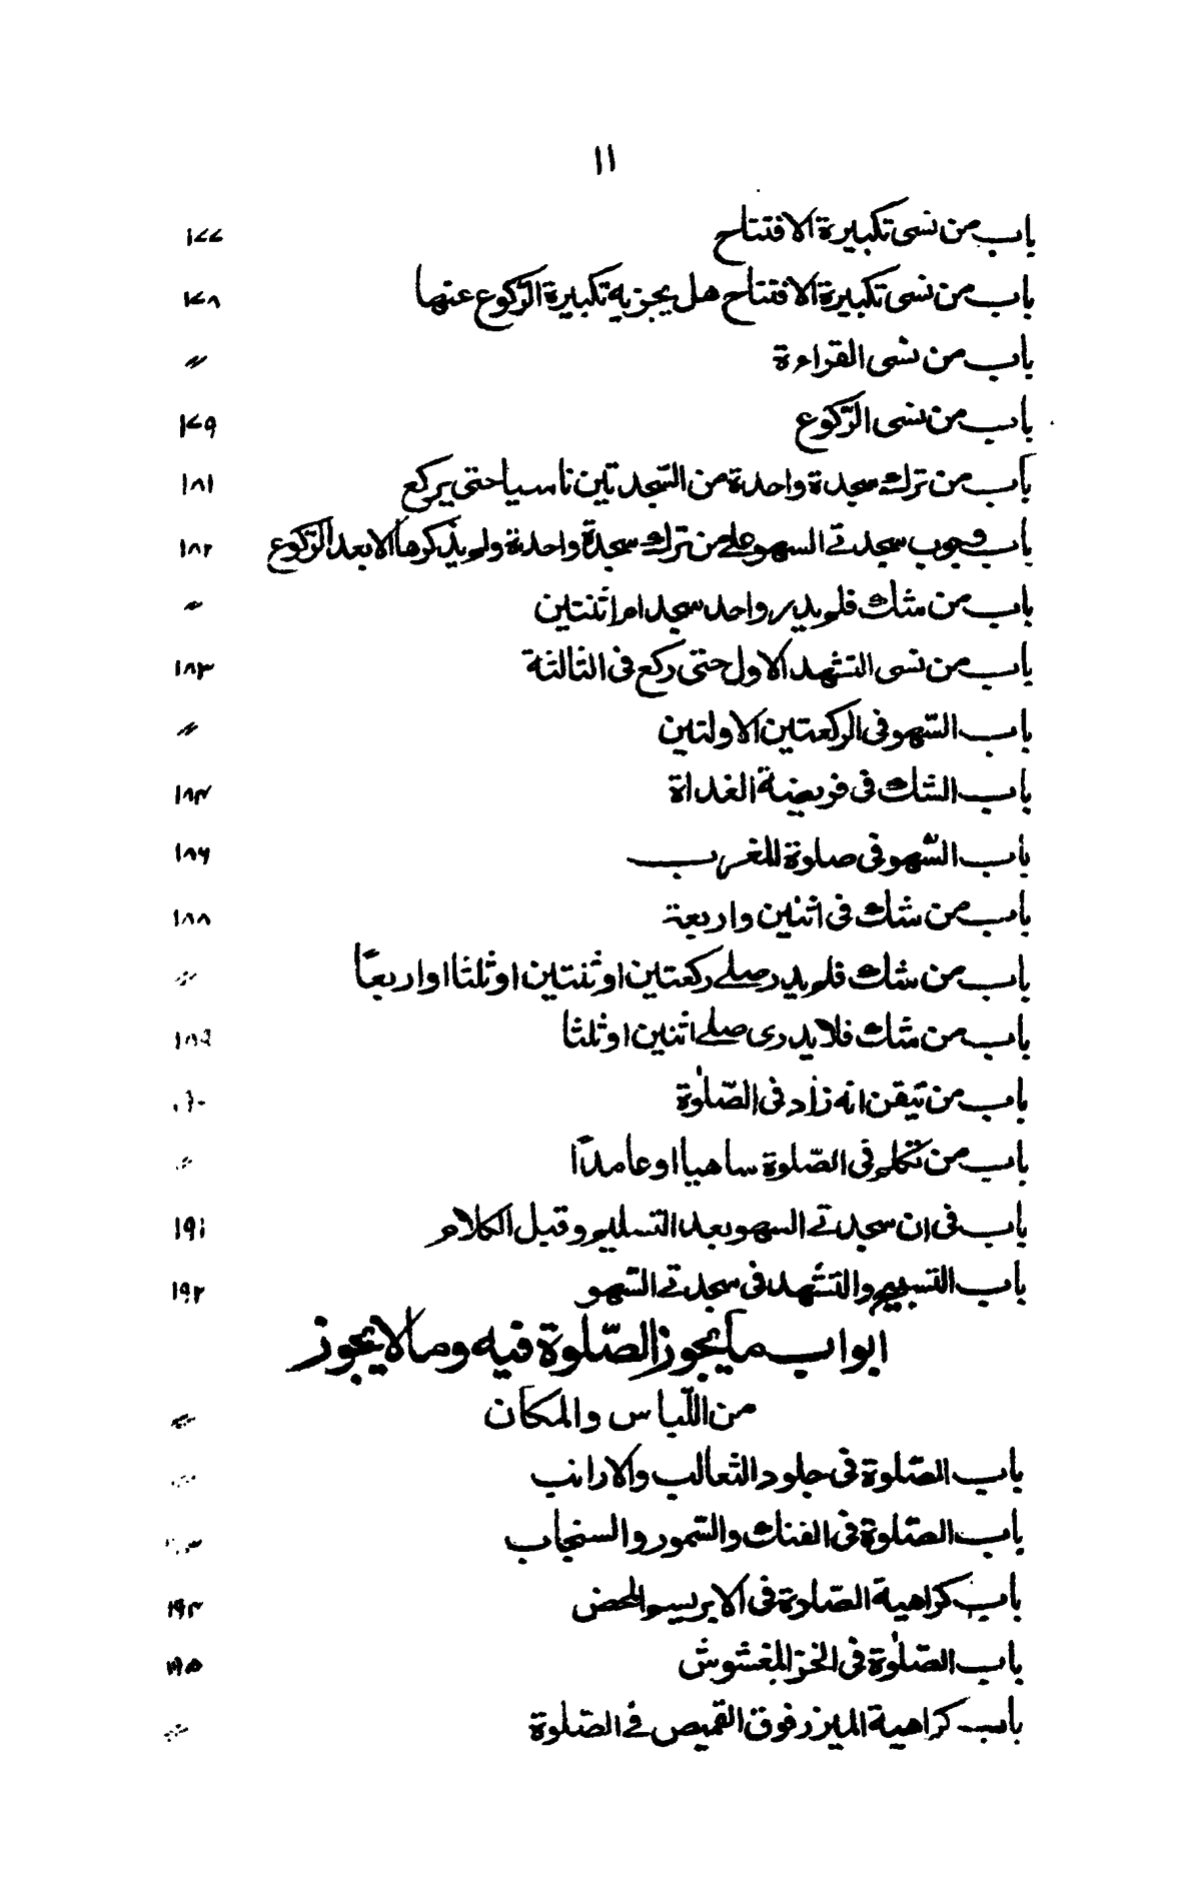 ١١
باب من نسى تكبيرة الافتتاح ١٧٧
باب من نسى تكبيرة الافتتاح هل يجزيه تكبيرة الرّكوع عنها ١٧٨
باب من نسى القراءة 〃
باب من نسى الرّكوع ١٧٩
باب من ترك سجدة واحدة من السّجدتين ناسيا حتى يركع ١٨١
باب وجوب سجدتى السهو على من ترك سجدة واحدة ولم يذكرها الا بعد الرّكوع ١٨٢
باب من شك فلم يدر واحد سجد ام اثنتين 〃
باب من نسى التشهد الاول حتى ركع فى الثالثة ١٨٣
باب السّهو فى الركعتين الاولتين 〃
باب الشك فى فريضة الغداة ١٨٤
باب السّهو فى صلوة المغرب ١٨٦
باب من شك فى اثنين واربعة ١٨٨
باب من شك فلم يدر صلى ركعتين او ثنتين او ثلثا او اربعًا 〃
باب من شك فلا يدرى صلى اثنين او ثلثا ١٨٩
باب من تيقن انه زاد فى الصّلوٰة
باب من تكلم فى الصّلوة ساهيا او عامدًا 〃
باب فى ان سجدتى السهو بعد التسليم وقبل الكلام ١٩١
باب التسبيح والتشهد فى سجدتى السّهو ١٩٢
ابواب ما يجوز الصّلوة فيه وما لا يجوز
من اللّباس والمكان 〃
باب الصّلوة فى جلود الثعالب والارانب 〃
باب الصّلوة فى الفنك والسّمور والسنجاب
باب كراهية الصّلوة فى الابريسم المحض ١٩٤
باب الصّلوٰة فى الخز المغشوش ١٩٥
باب كراهية الميزر فوق القميص فى الصّلوة 〃